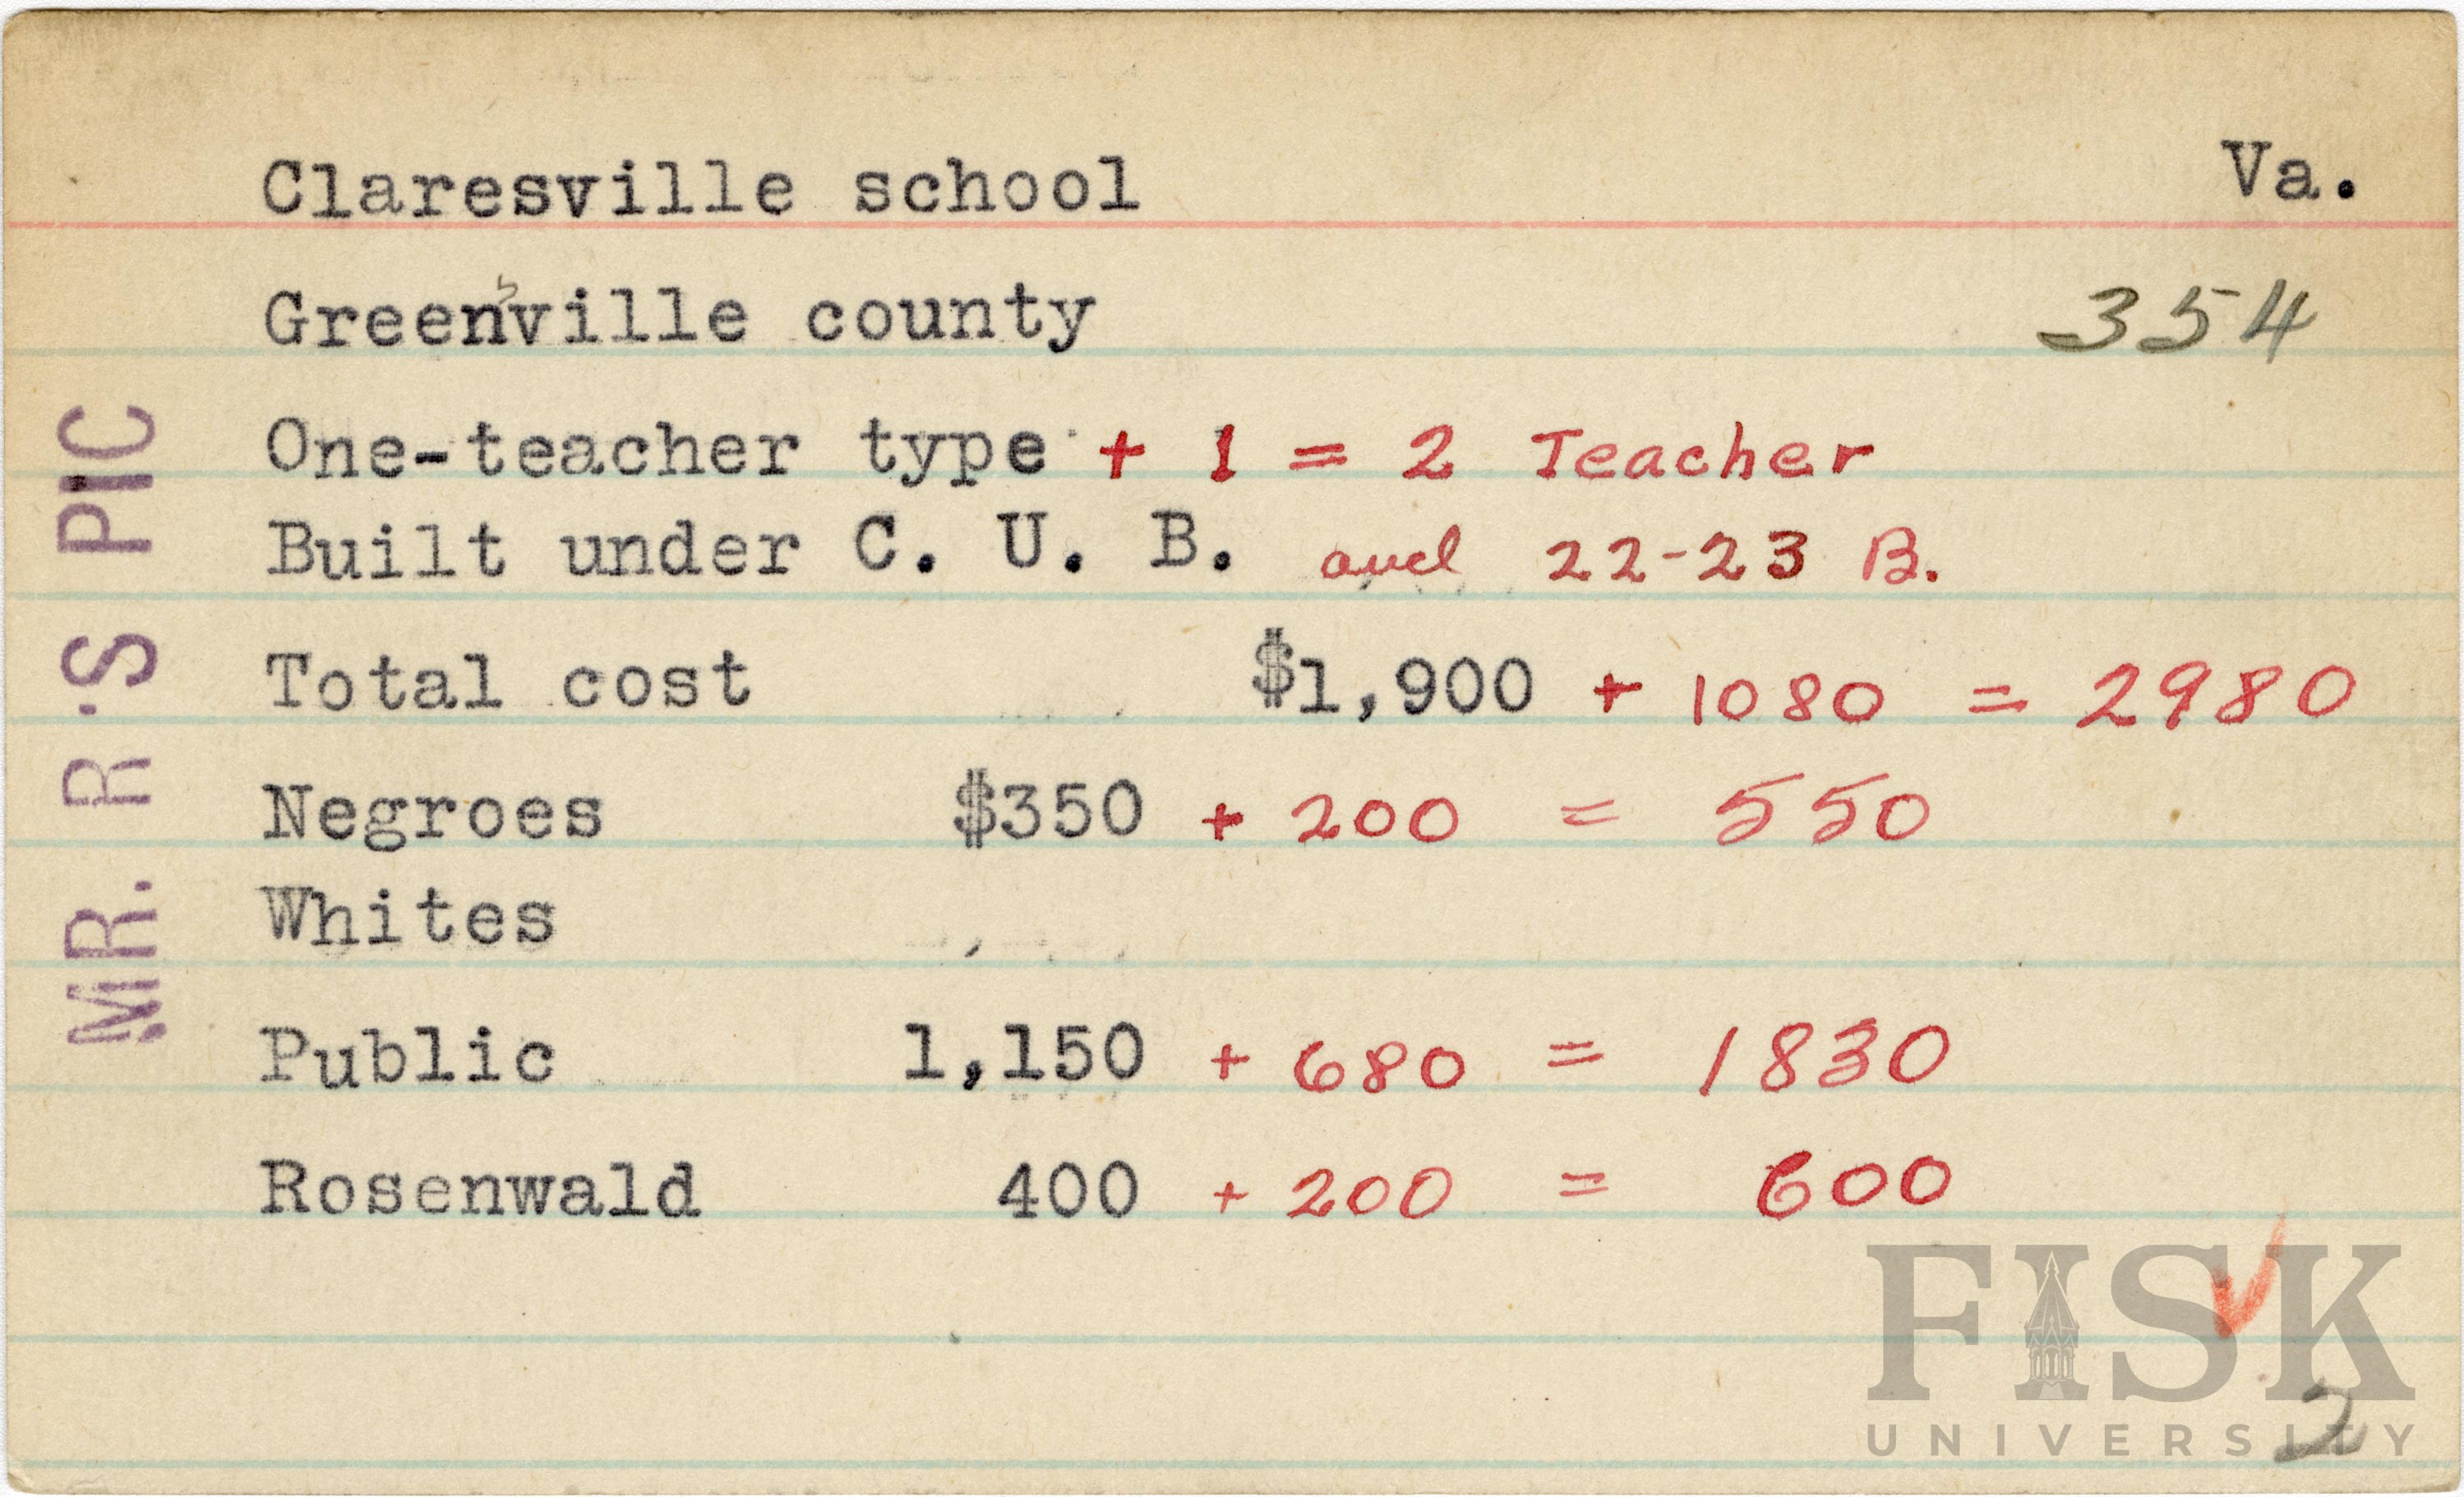 Claresville school Va.
Greensville county 354
One-teacher type + 1 = 2 Teacher
Built under C. U. B. and 22-23 B.
Total cost $1,900 + 1080 = 2980
Negroes $350 + 200 = 550
Whites
Public 1,150 + 680 = 1830
Rosenwald 400 + 200 = 600
MR. R'S PIC
FISK
UNIVERSITY
2